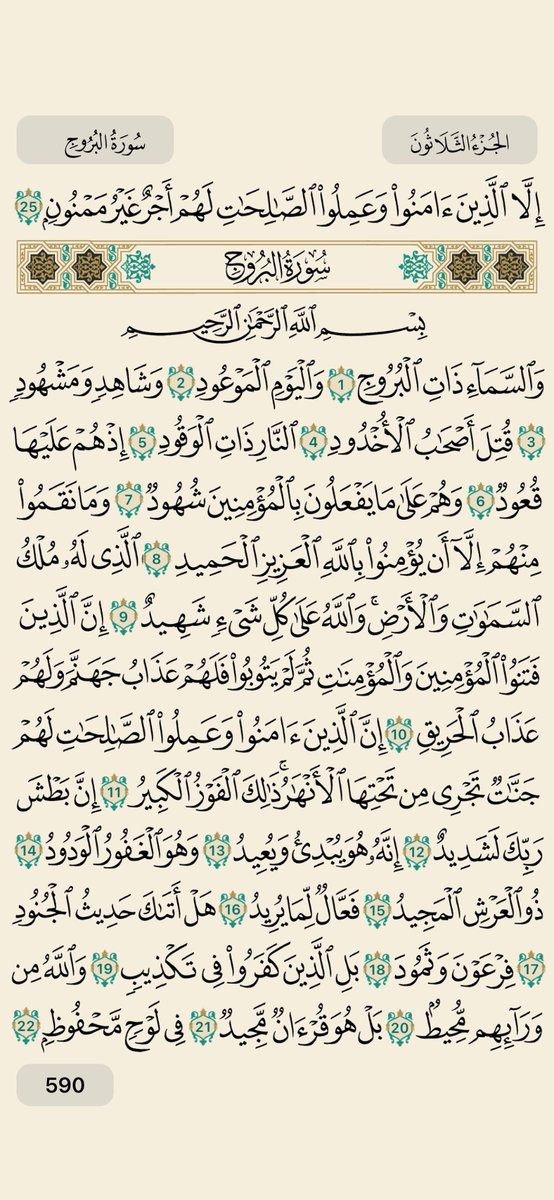 الجُزْءُ الثَّلَاثُونَ
سُورَةُ البُرُوجِ
إِلَّا ٱلَّذِينَ ءَامَنُوا۟ وَعَمِلُوا۟ ٱلصَّٰلِحَٰتِ لَهُمْ أَجْرٌ غَيْرُ مَمْنُونٍۭ 25
سُورَةُ البُرُوجِ
بِسْمِ ٱللَّهِ ٱلرَّحْمَٰنِ ٱلرَّحِيمِ
وَٱلسَّمَآءِ ذَاتِ ٱلْبُرُوجِ 1 وَٱلْيَوْمِ ٱلْمَوْعُودِ 2 وَشَاهِدٍ وَمَشْهُودٍ
3 قُتِلَ أَصْحَٰبُ ٱلْأُخْدُودِ 4 ٱلنَّارِ ذَاتِ ٱلْوَقُودِ 5 إِذْ هُمْ عَلَيْهَا
قُعُودٌ 6 وَهُمْ عَلَىٰ مَا يَفْعَلُونَ بِٱلْمُؤْمِنِينَ شُهُودٌ 7 وَمَا نَقَمُوا۟
مِنْهُمْ إِلَّآ أَن يُؤْمِنُوا۟ بِٱللَّهِ ٱلْعَزِيزِ ٱلْحَمِيدِ 8 ٱلَّذِى لَهُۥ مُلْكُ
ٱلسَّمَٰوَٰتِ وَٱلْأَرْضِ ۚ وَٱللَّهُ عَلَىٰ كُلِّ شَىْءٍ شَهِيدٌ 9 إِنَّ ٱلَّذِينَ
فَتَنُوا۟ ٱلْمُؤْمِنِينَ وَٱلْمُؤْمِنَٰتِ ثُمَّ لَمْ يَتُوبُوا۟ فَلَهُمْ عَذَابُ جَهَنَّمَ وَلَهُمْ
عَذَابُ ٱلْحَرِيقِ 10 إِنَّ ٱلَّذِينَ ءَامَنُوا۟ وَعَمِلُوا۟ ٱلصَّٰلِحَٰتِ لَهُمْ
جَنَّٰتٌ تَجْرِى مِن تَحْتِهَا ٱلْأَنْهَٰرُ ۚ ذَٰلِكَ ٱلْفَوْزُ ٱلْكَبِيرُ 11 إِنَّ بَطْشَ
رَبِّكَ لَشَدِيدٌ 12 إِنَّهُۥ هُوَ يُبْدِئُ وَيُعِيدُ 13 وَهُوَ ٱلْغَفُورُ ٱلْوَدُودُ 14
ذُو ٱلْعَرْشِ ٱلْمَجِيدُ 15 فَعَّالٌ لِّمَا يُرِيدُ 16 هَلْ أَتَىٰكَ حَدِيثُ ٱلْجُنُودِ
17 فِرْعَوْنَ وَثَمُودَ 18 بَلِ ٱلَّذِينَ كَفَرُوا۟ فِى تَكْذِيبٍ 19 وَٱللَّهُ مِن
وَرَآئِهِم مُّحِيطٌۢ 20 بَلْ هُوَ قُرْءَانٌ مَّجِيدٌ 21 فِى لَوْحٍ مَّحْفُوظٍۭ 22
590